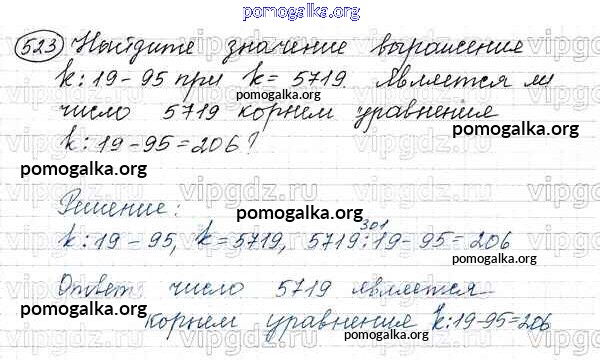 pomogalka.org
523 Найдите значение выражение
k:19-95 при k=5719. Является ли
pomogalka.org
число 5719 корнем уравнения
pomogalka.org
k:19-95=206?
pomogalka.org
vipgdz.ru vipgdz.ru vipgdz.ru
Решение:
pomogalka.org
301
k:19-95, k=5719, 5719:19-95=206
pomogalka.org
Ответ число 5719 является
pomogalka.org
корнем уравнения k:19-95=206
pomogalka.org